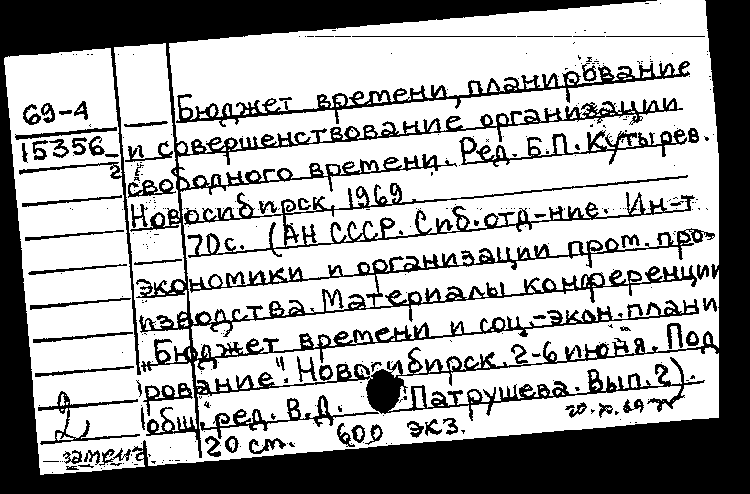 69-4
15356-2
Бюджет времени, планирование
и совершенствование организации
свободного времени. Ред. Б.П. Кутырев.
Новосибирск, 1969.
70с. (АН СССР. Сиб. отд-ние. Ин-т
экономики и организации пром. про-
изводства. Материалы конференции
"Бюджет времени и соц.-экон. плани
рование". Новосибирск. 2-6 июня. Под
общ. ред. В.Д. Патрушева. Вып. 2).
20 см. 600 экз.
2
замена